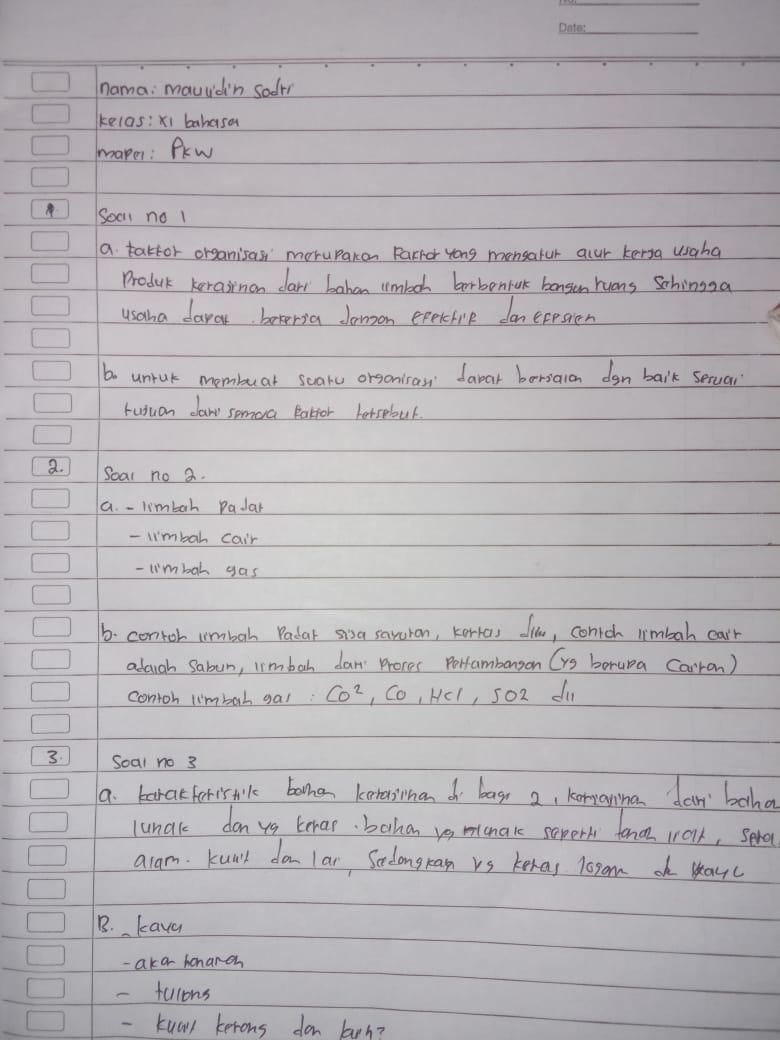 No.
Date:
nama: mauydin sodri
kelas: XI bahasa
maper: PKW
1.
Soal no 1
a. faktor organisasi merupakan Faktor yang mengatur alur kerja usaha
Produk kerajinan dari bahan limbah berbentuk bangun ruang Sehingga
usaha dapat bekerja dengan efektif dan efesien
b. untuk membuat suatu organisasi dapat berjalan dgn baik sesuai
tujuan dari semora faktor tersebut.
2.
Soal no 2.
a. - limbah padat
- limbah cair
- limbah gas
b. contoh limbah Padat sisa sayuran, kertas dll, contoh limbah cair
adalah Sabun, limbah dari Proses Pertambangan (yg berupa Cairan)
Contoh limbah gas : CO², CO, HCl, SO2 dll
3.
Soal no 3
a. karakteristik bahan kerajinan di bagi 2, kerajinan dari baha
lunak dan yg keras. bahan yg lunak seperti tanah liat, sera
alam. kulit dan lar, Sedangkan yg keras logam dk kayu
B. - kayu
- akar tanaman
- tulang
- kulit kerang dan